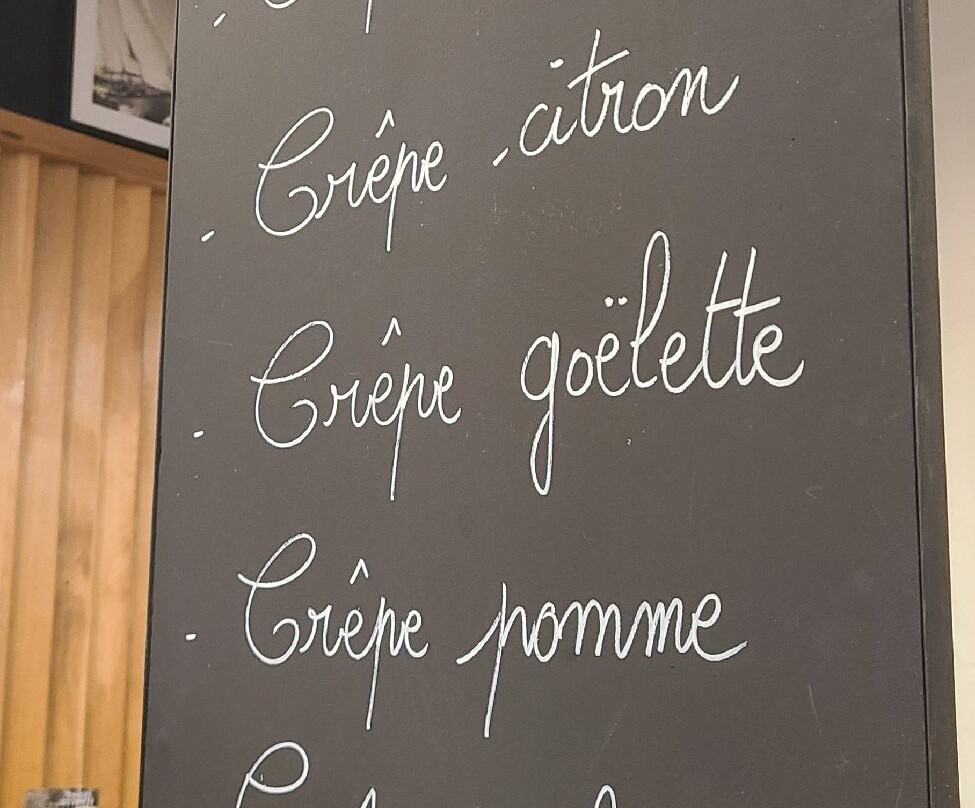 - Crêpe citron
- Crêpe goëlette
- Crêpe pomme